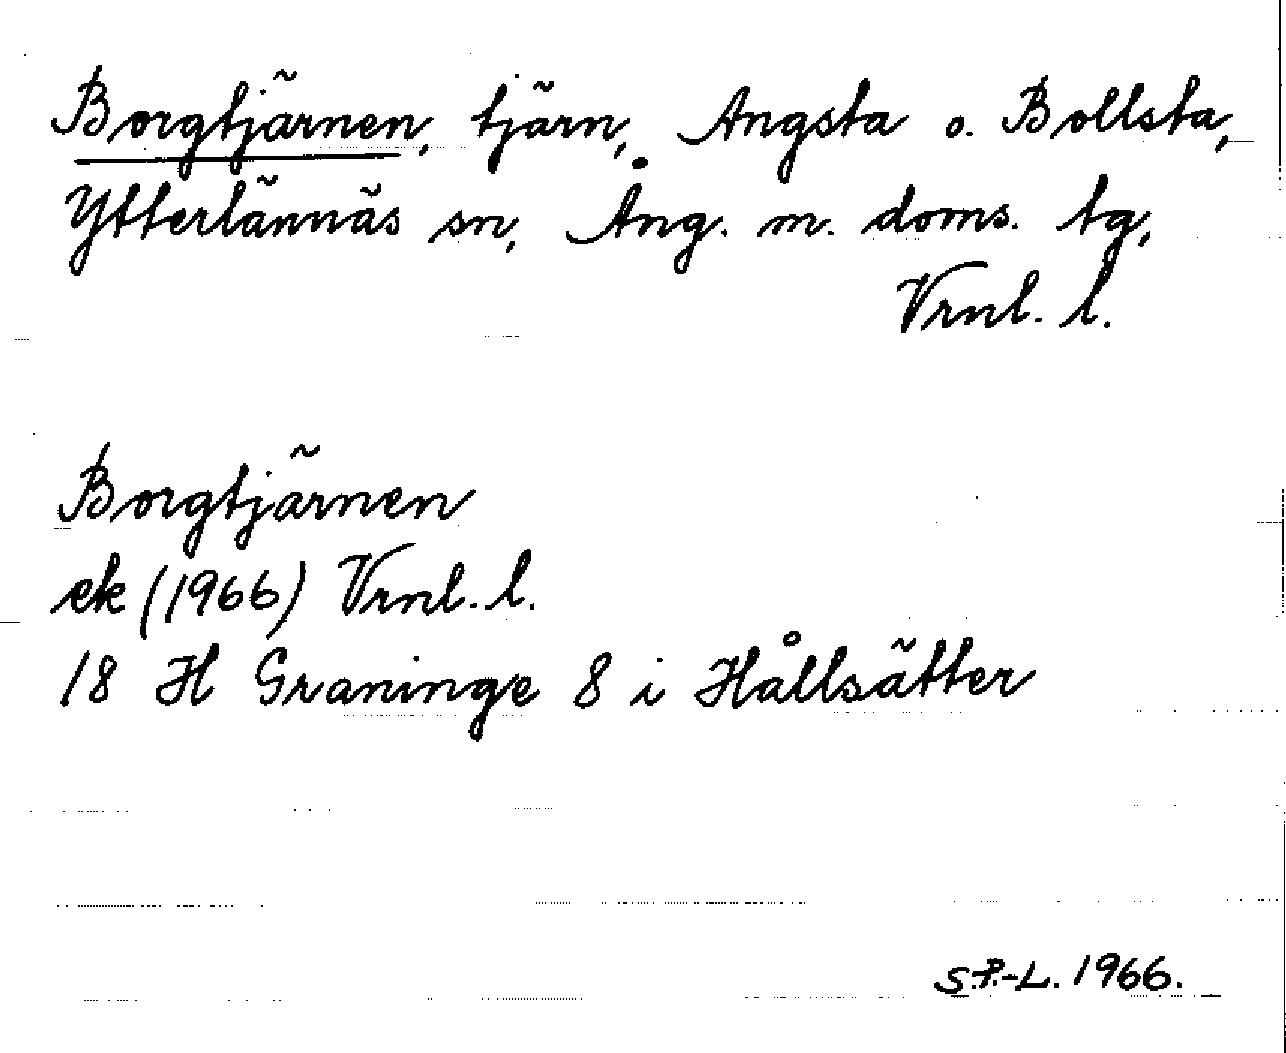 Borgtjärnen, tjärn, Angsta o. Bollsta,
Ytterlännäs sn, Ång. m. doms. tg,
Vrnl. l.
Borgtjärnen
ek (1966) Vrnl. l.
18 H Graninge 8 i Hållsätter
S.P.-L. 1966.